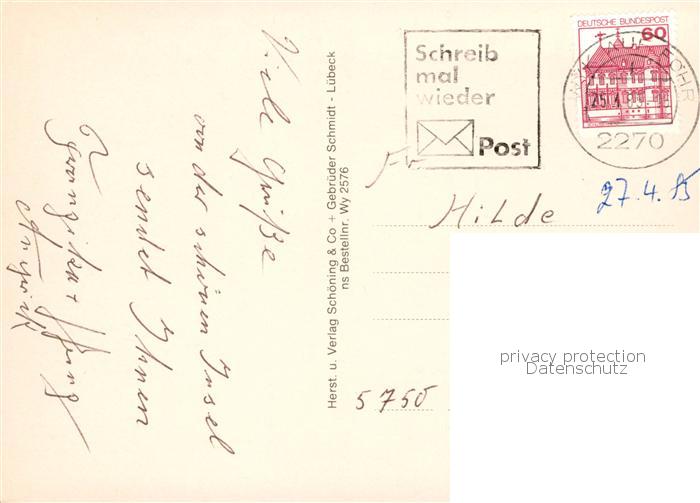 Viele Grüße
von der schönen Insel
sendet Ihnen
Franziska +
Herst. u. Verlag Schöning & Co + Gebrüder Schmidt - Lübeck
ns Bestellnr. Wy 2576
Schreib
mal
wieder
Post
DEUTSCHE BUNDESPOST
60
WYK FÖHR
25.4.85
2270
27.4.85
Fr
Hilde
5750
privacy protection
Datenschutz